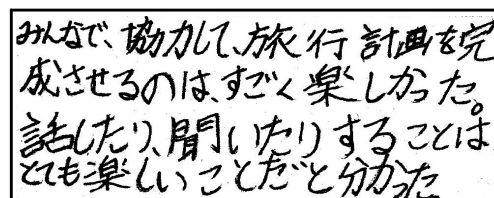 みんなで、協力して、旅行計画を完
成させるのは、すごく楽しかった。
話したり、聞いたりすることは
とても楽しいことだと分かった